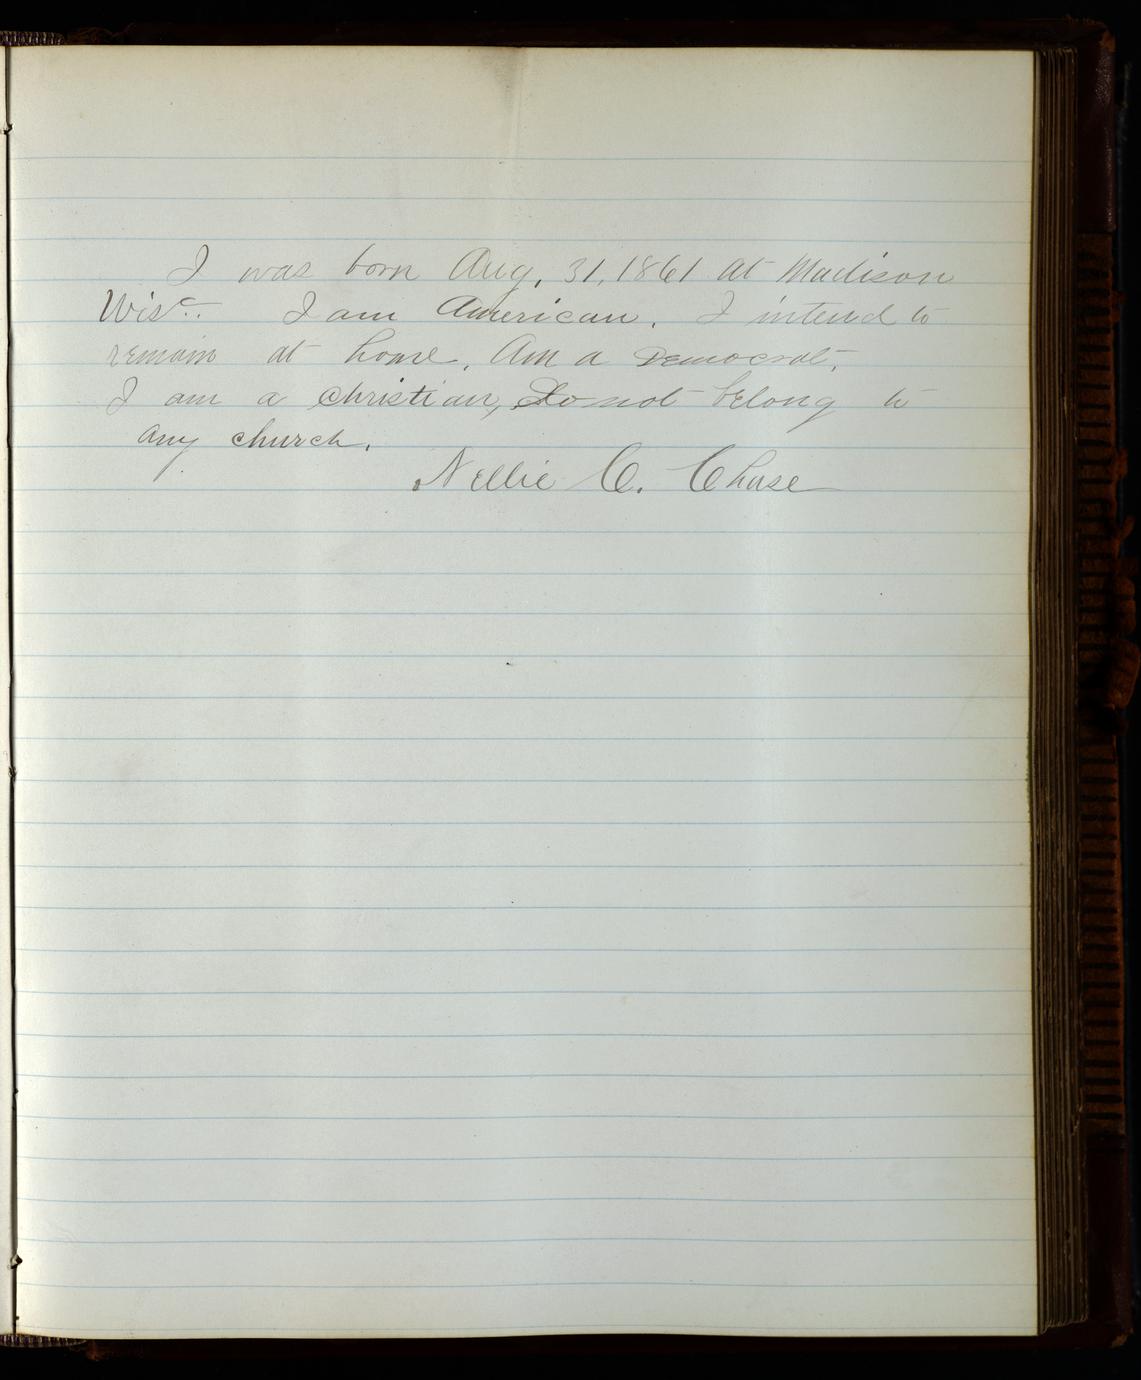 I was born Aug. 31, 1861 at Madison
Wisc. I am American. I intend to
remain at home. Am a Democrat.
I am a Christian, Do not belong to
any church.
Nellie C. Chase